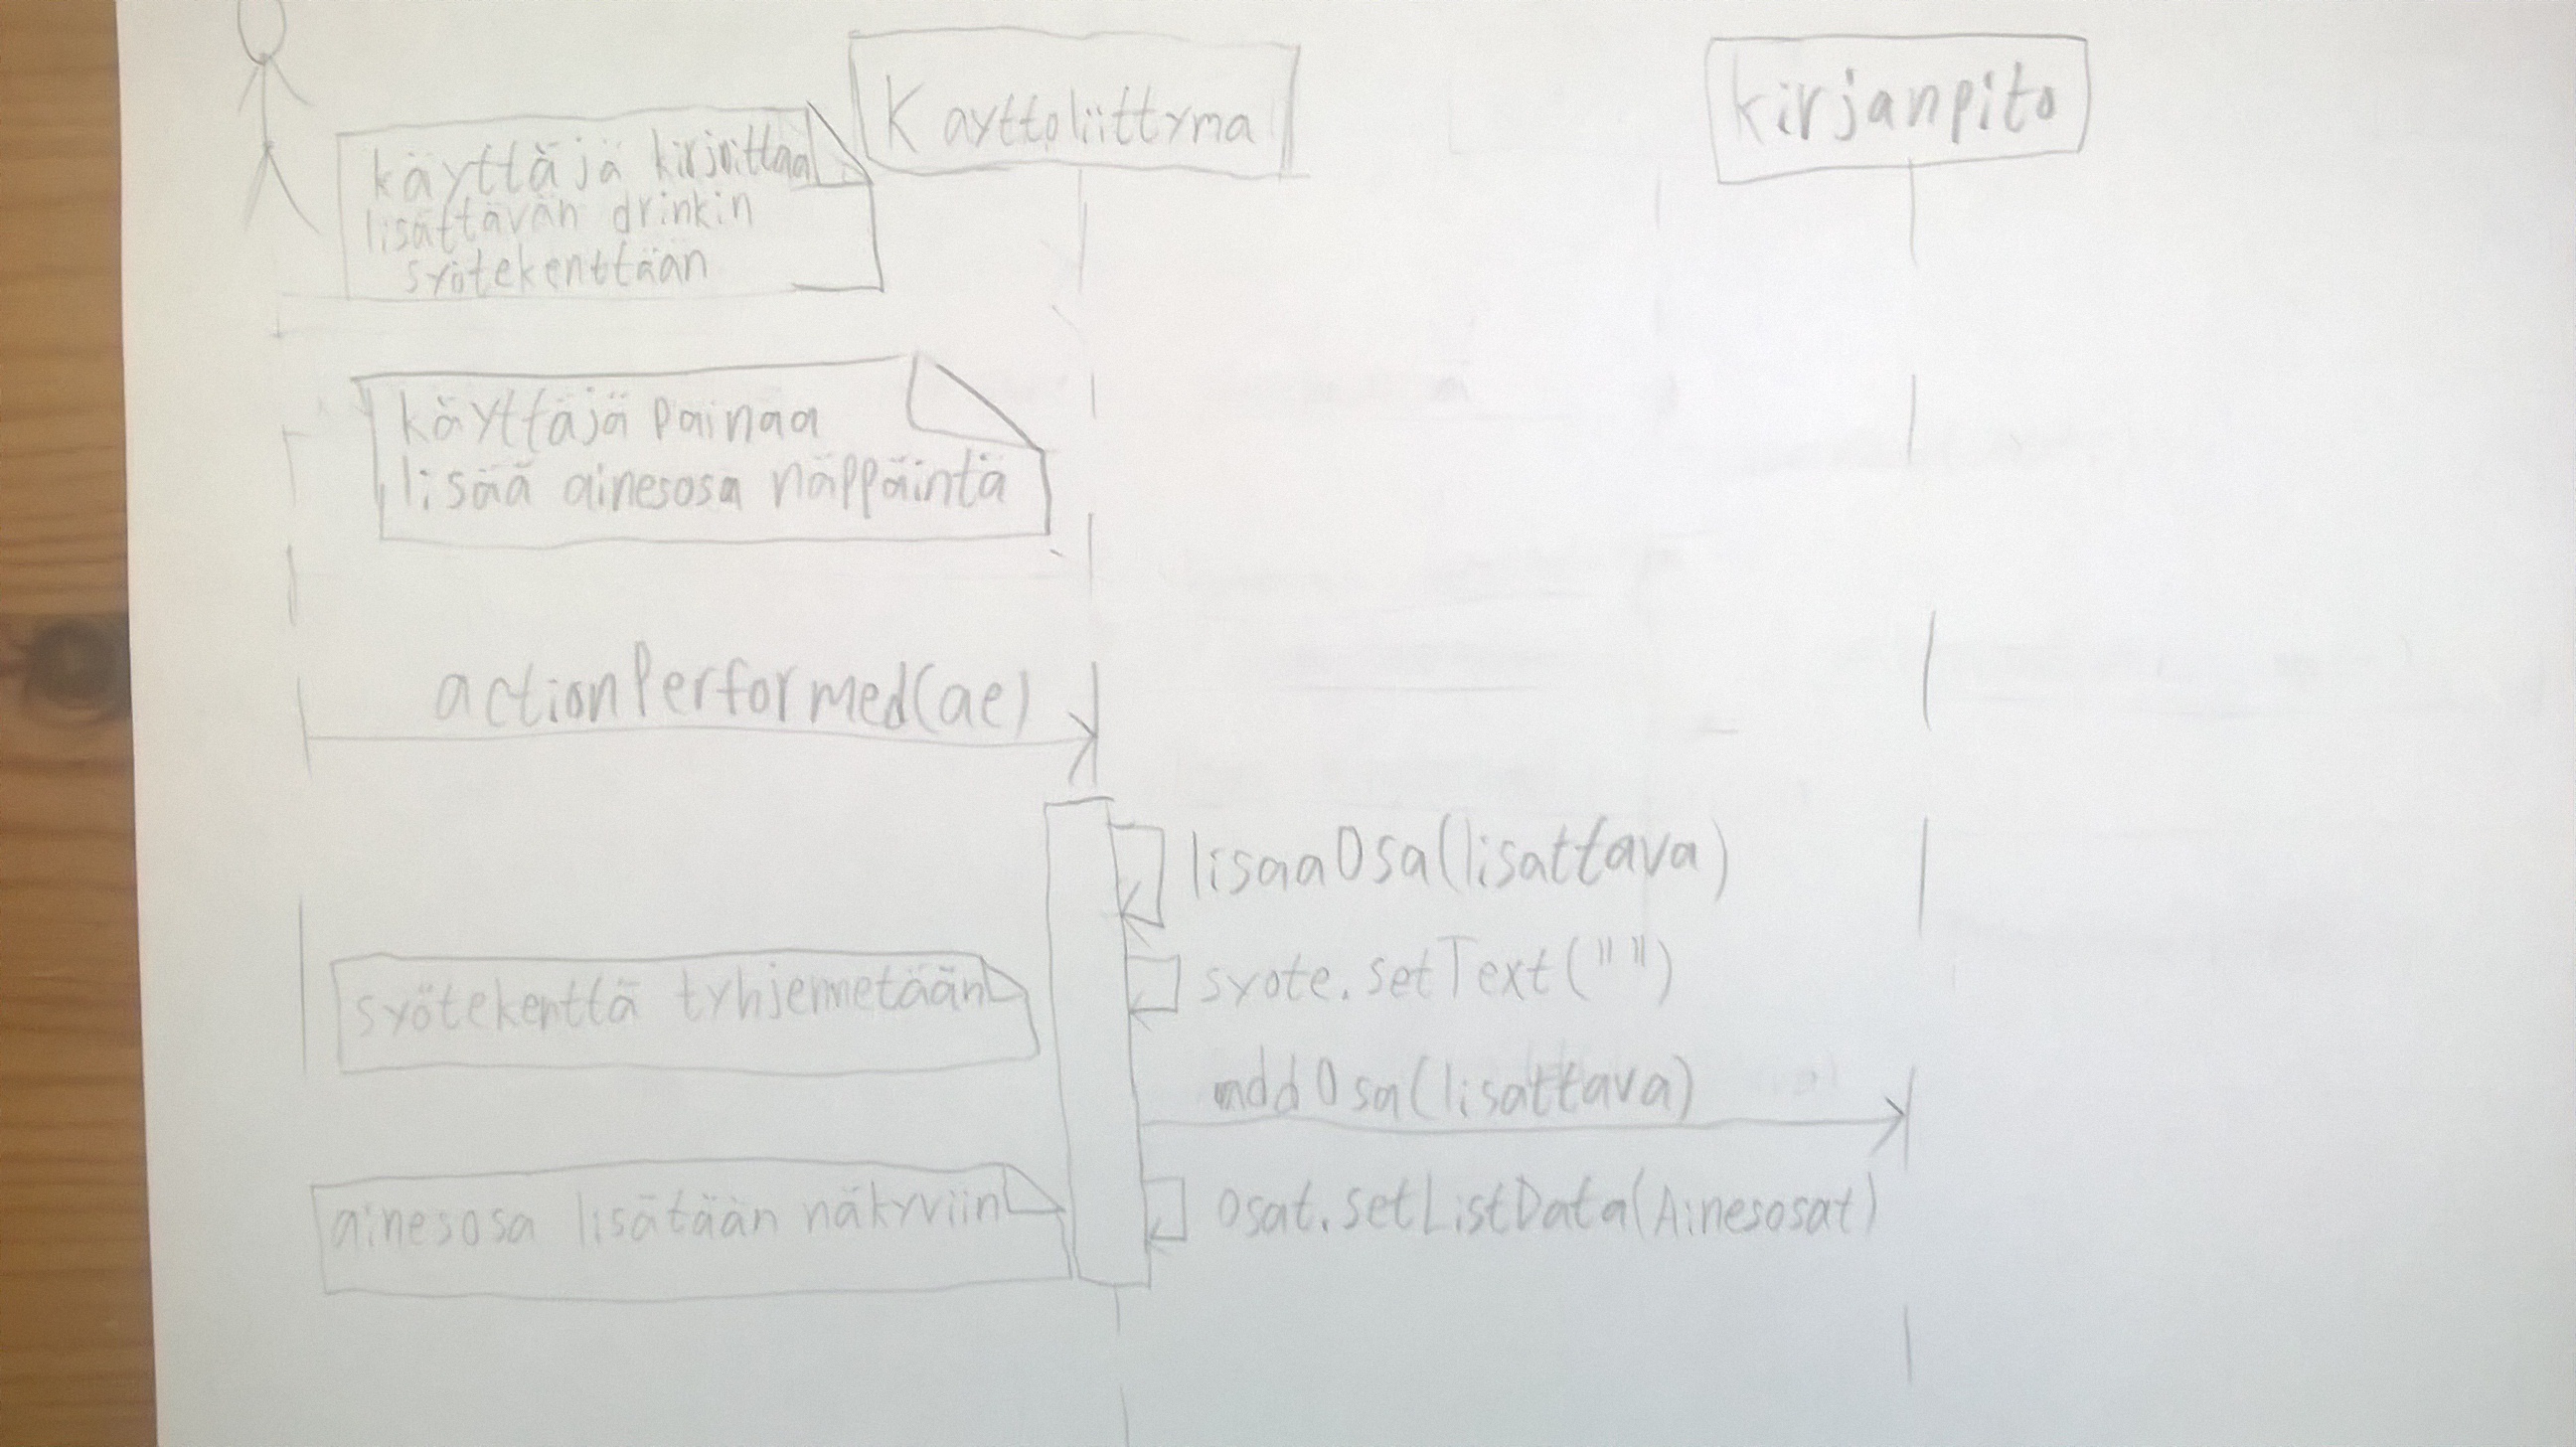 Kayttoliittyma
kirjanpito
käyttäjä kirjoittaa
lisättävän drinkin
syötekenttään
käyttäjä painaa
lisää ainesosa näppäintä
actionPerformed(ae)
lisaaOsa(lisattava)
syötekenttä tyhjennetään
syote.setText("")
addOsa(lisattava)
ainesosa lisätään näkyviin
osat.setListData(Ainesosat)